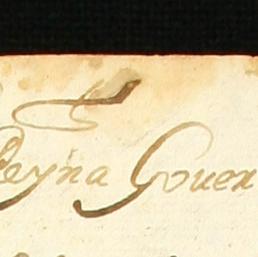 Reyna Gouer